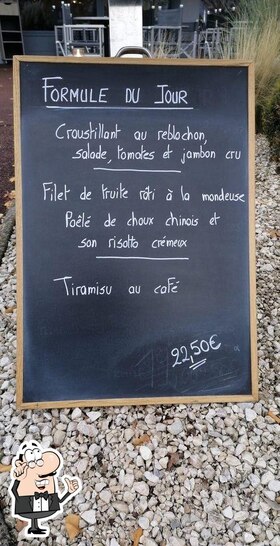 FORMULE DU JOUR
Croustillant au reblochon,
salade, tomates et jambon cru
Filet de truite rôti à la mondeuse
Poêlé de choux chinois et
son risotto crémeux
Tiramisu au café
22,50€